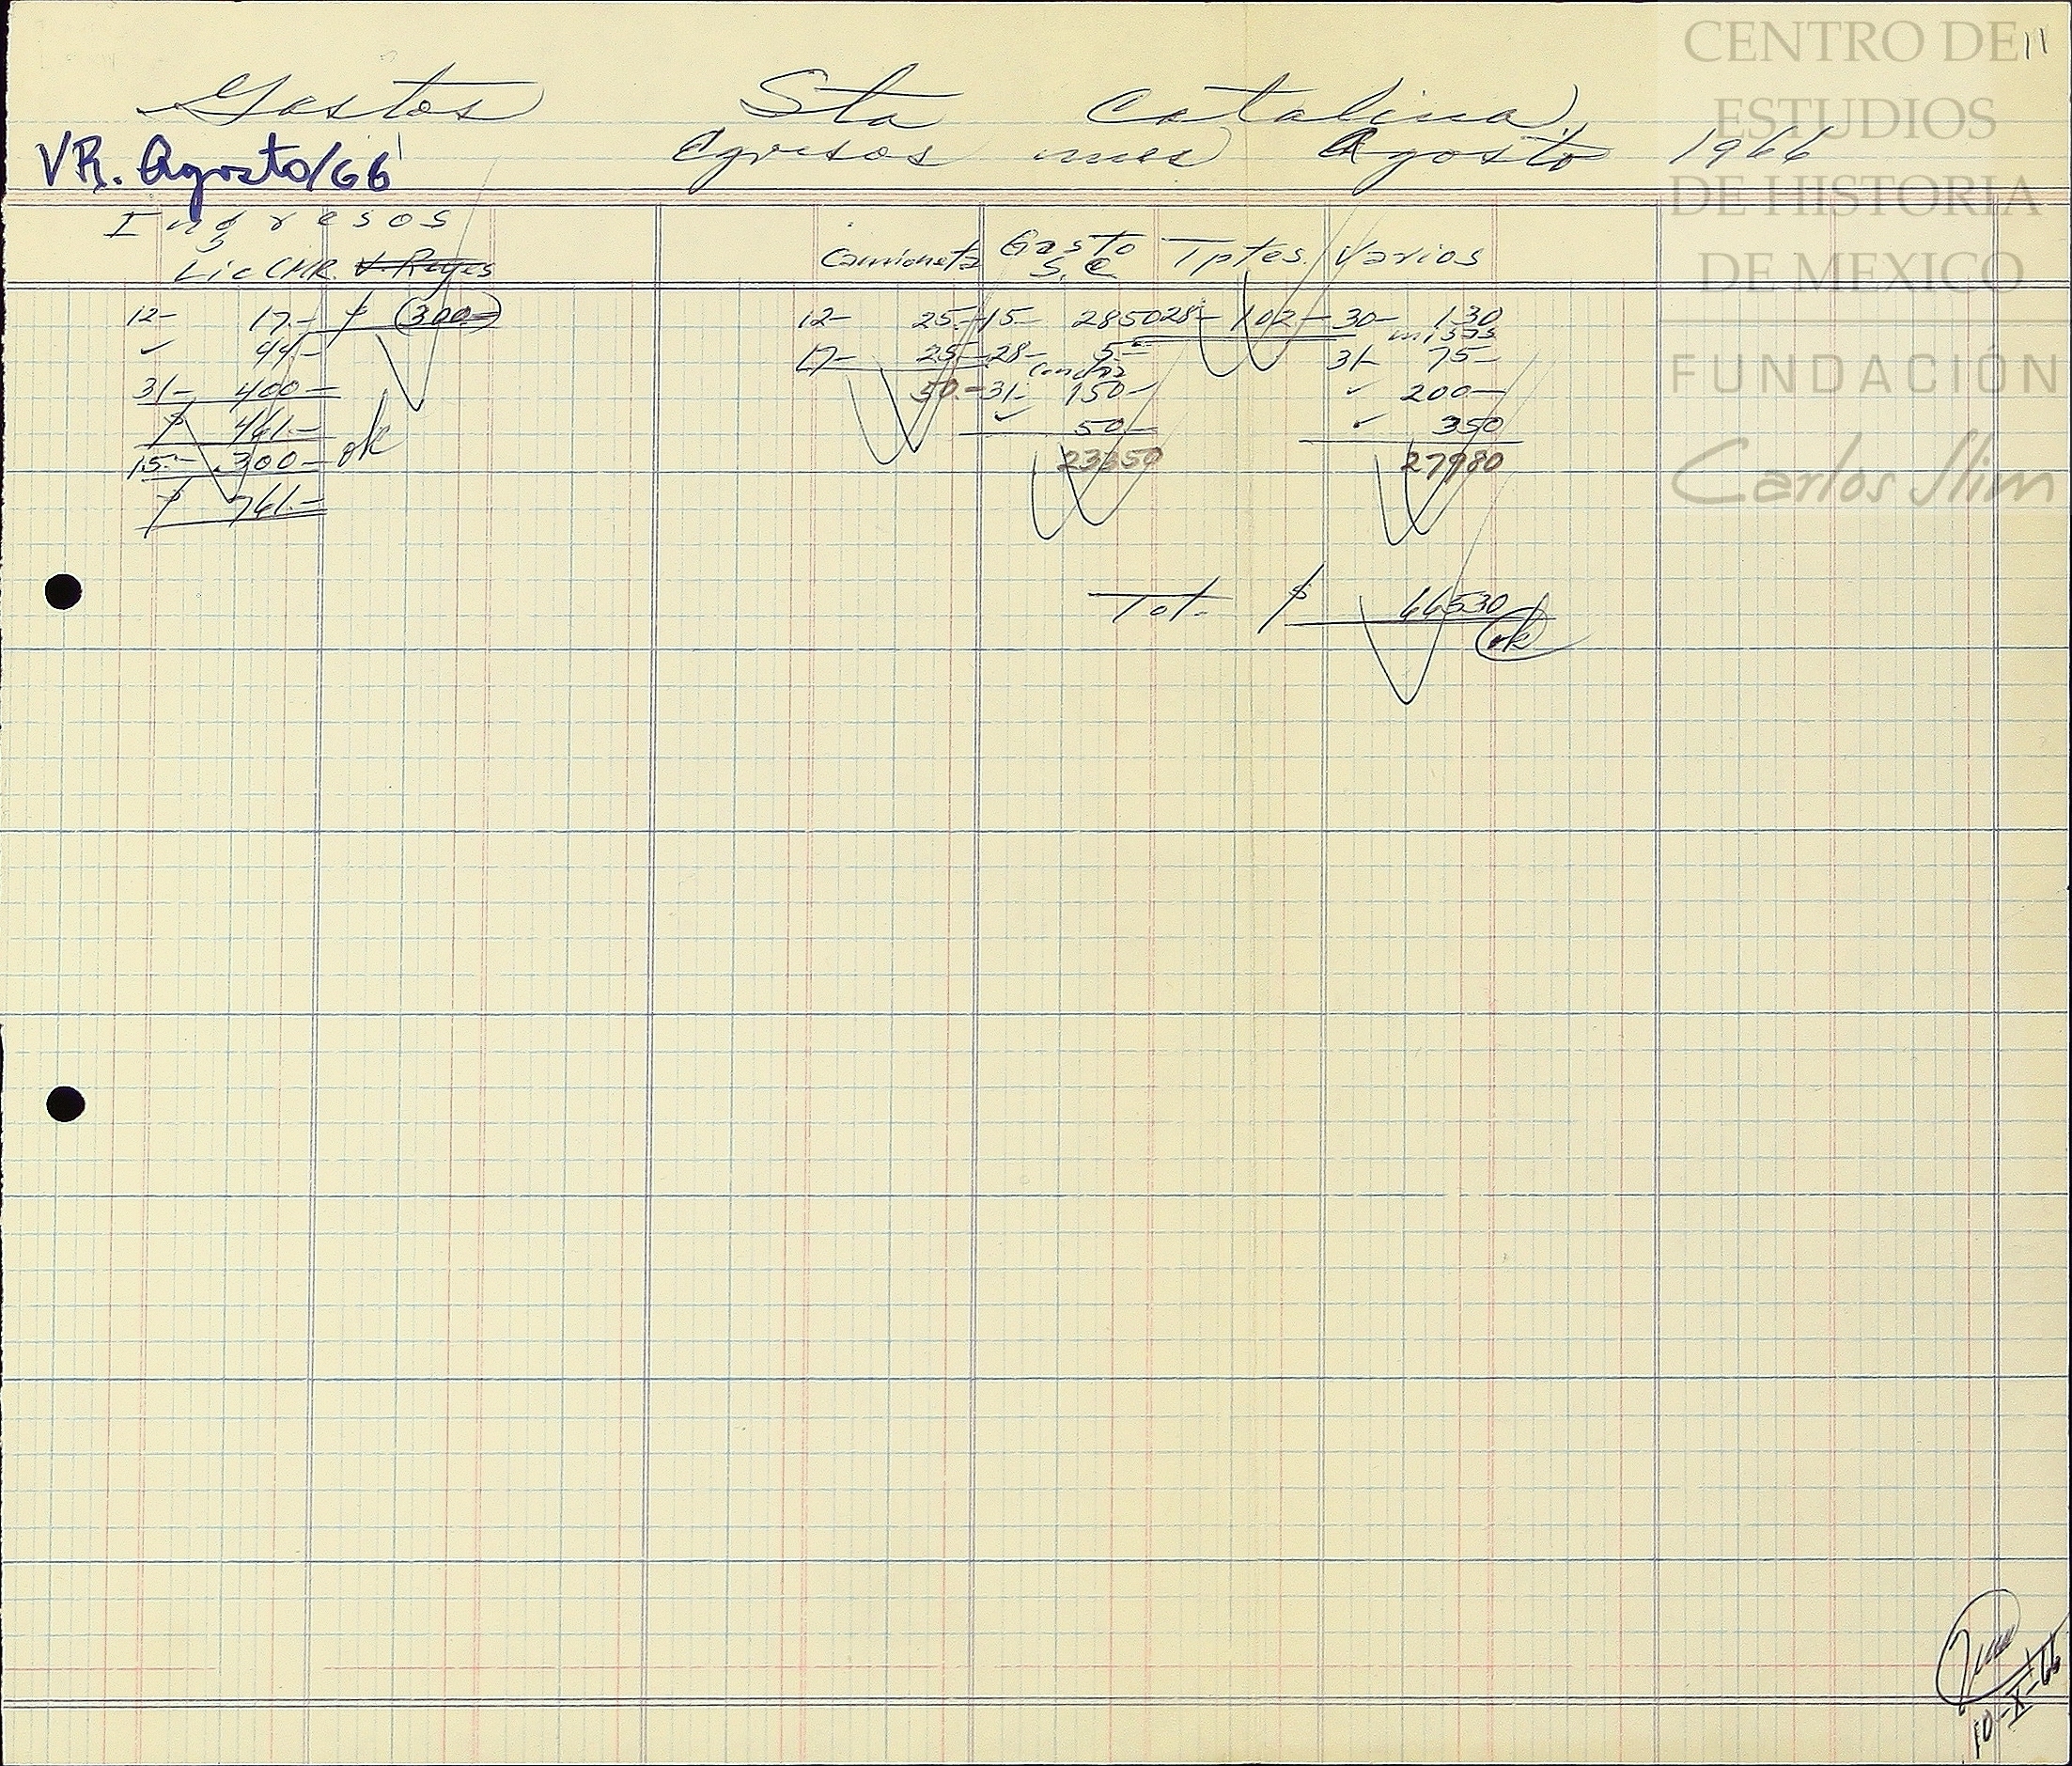 11
CENTRO DE
ESTUDIOS
DE HISTORIA
DE MEXICO
FUNDACIÓN
Carlos Slim
Gastos Sta Catalina,
VR. Agosto/66 Egresos mes Agosto 1966
Ingresos
Lic CHR. V. Reyes
Camioneta Gasto S. C Tptes. Varios
12- 17.- $ 300- 12- 25.- 15- 2850 28- 102- 30- 1.30
✓ 44.- 17- 25.- 28- 5- misas 31- 75-
31- 400- 50.- Concha 31- 150- ✓ 200-
$ 461.- ✓ 50- ✓ 350
15.- 300- ok 23350 27980
$ 761.-
Tot. $ 66530
ok
10-X-66